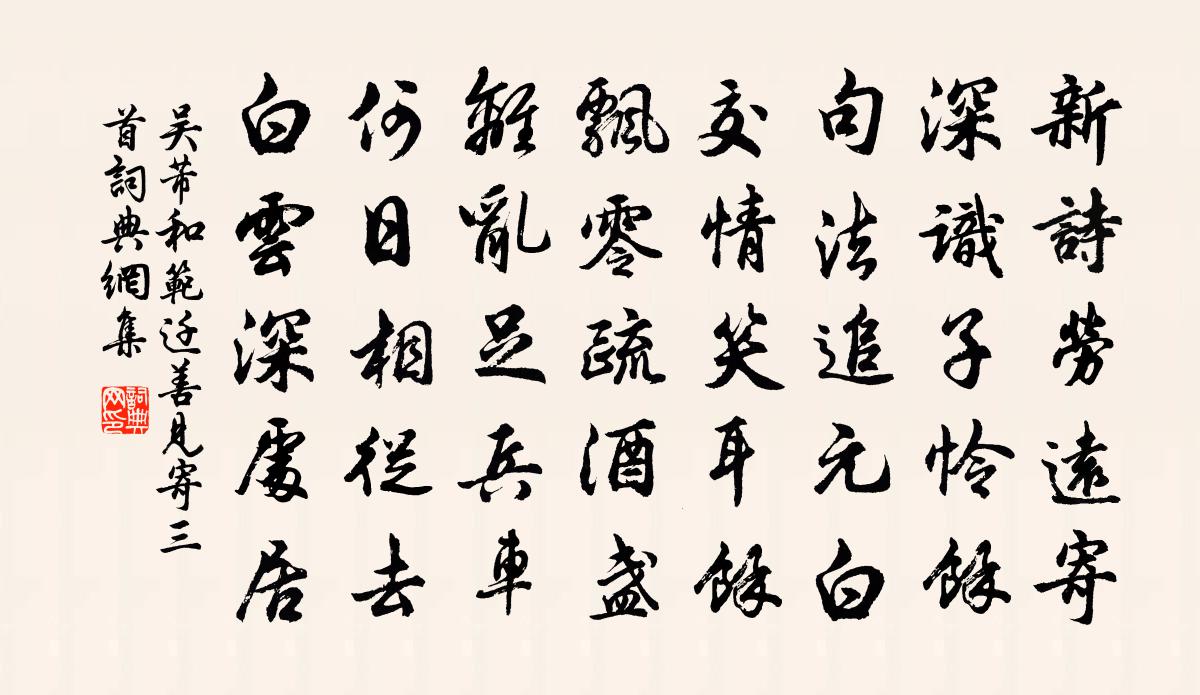 新詩勞遠寄
深識子怜餘
句法追元白
交情笑耳餘
飄零疏酒盞
離亂足兵車
何日相從去
白雲深處居
吴芾和範迁善見寄三
首詞典網集
詞典网印